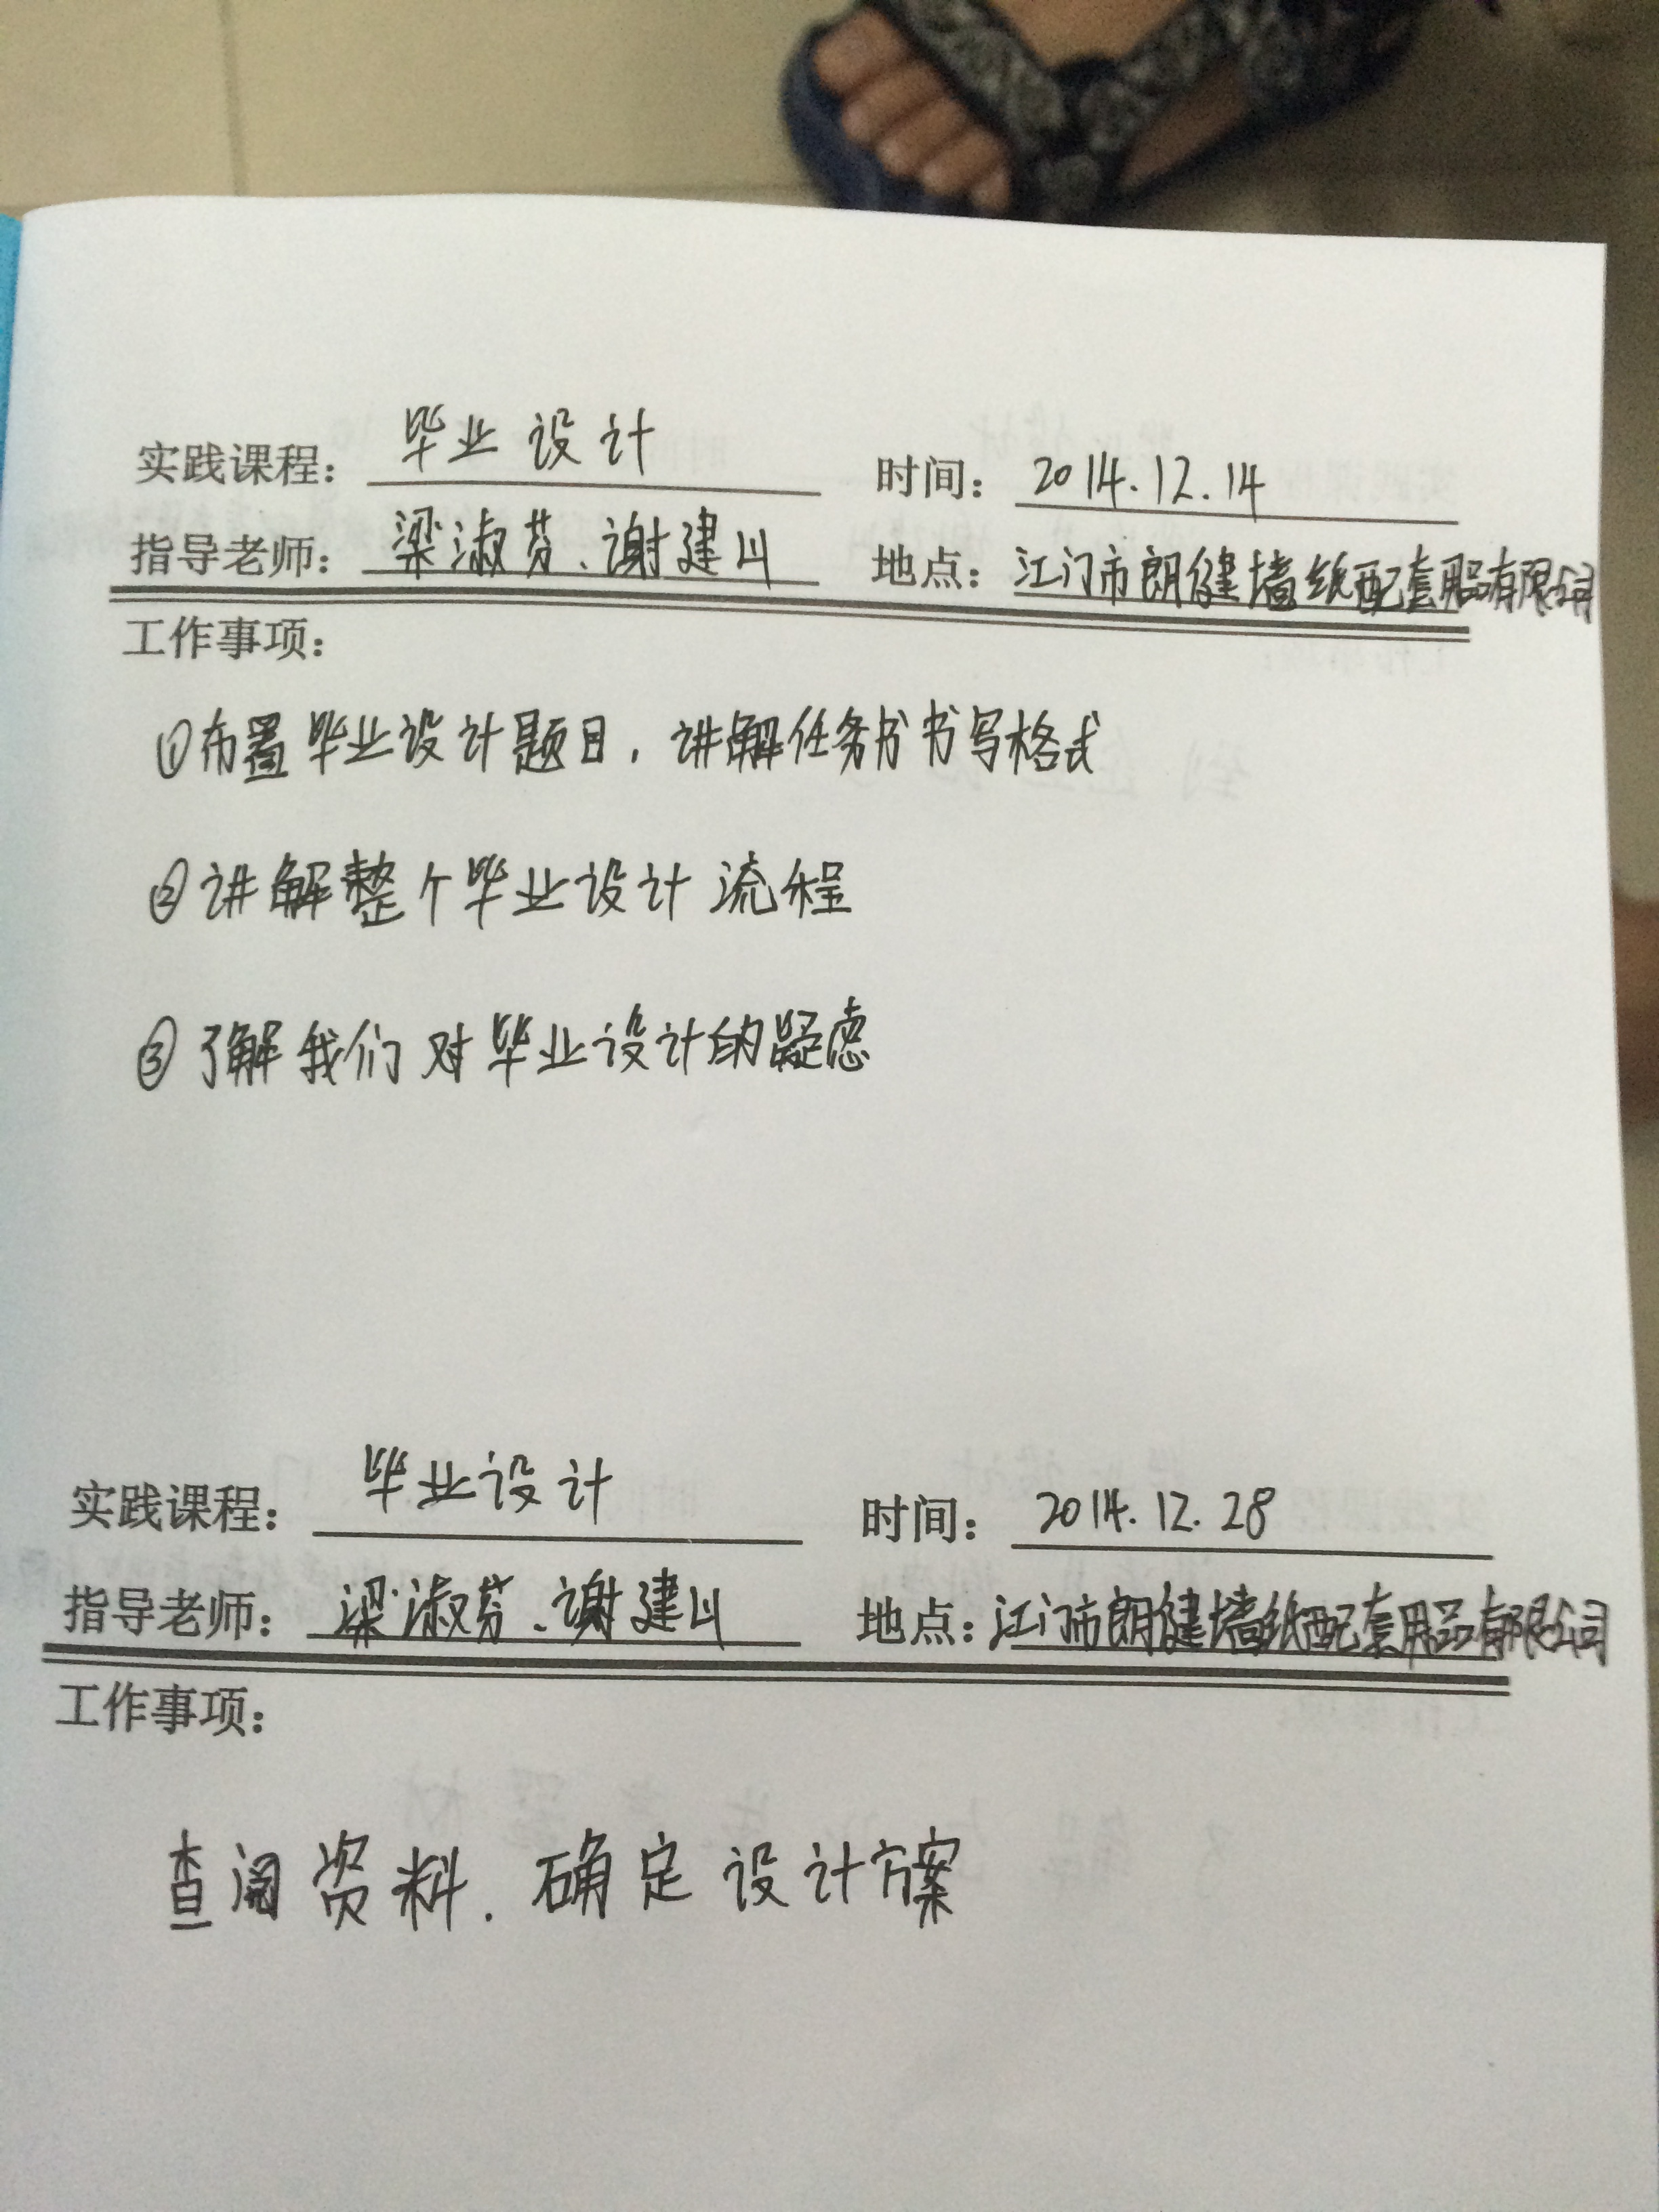 实践课程： 毕业设计 时间： 2014.12.14
指导老师： 梁淑芬、谢建川 地点： 江门市朗健墙纸配套用品有限公司
工作事项：
①布置毕业设计题目，讲解任务书书写格式
②讲解整个毕业设计流程
③了解我们对毕业设计的疑虑
实践课程： 毕业设计 时间： 2014.12.28
指导老师： 梁淑芬、谢建川 地点： 江门市朗健墙纸配套用品有限公司
工作事项：
查阅资料、确定设计方案